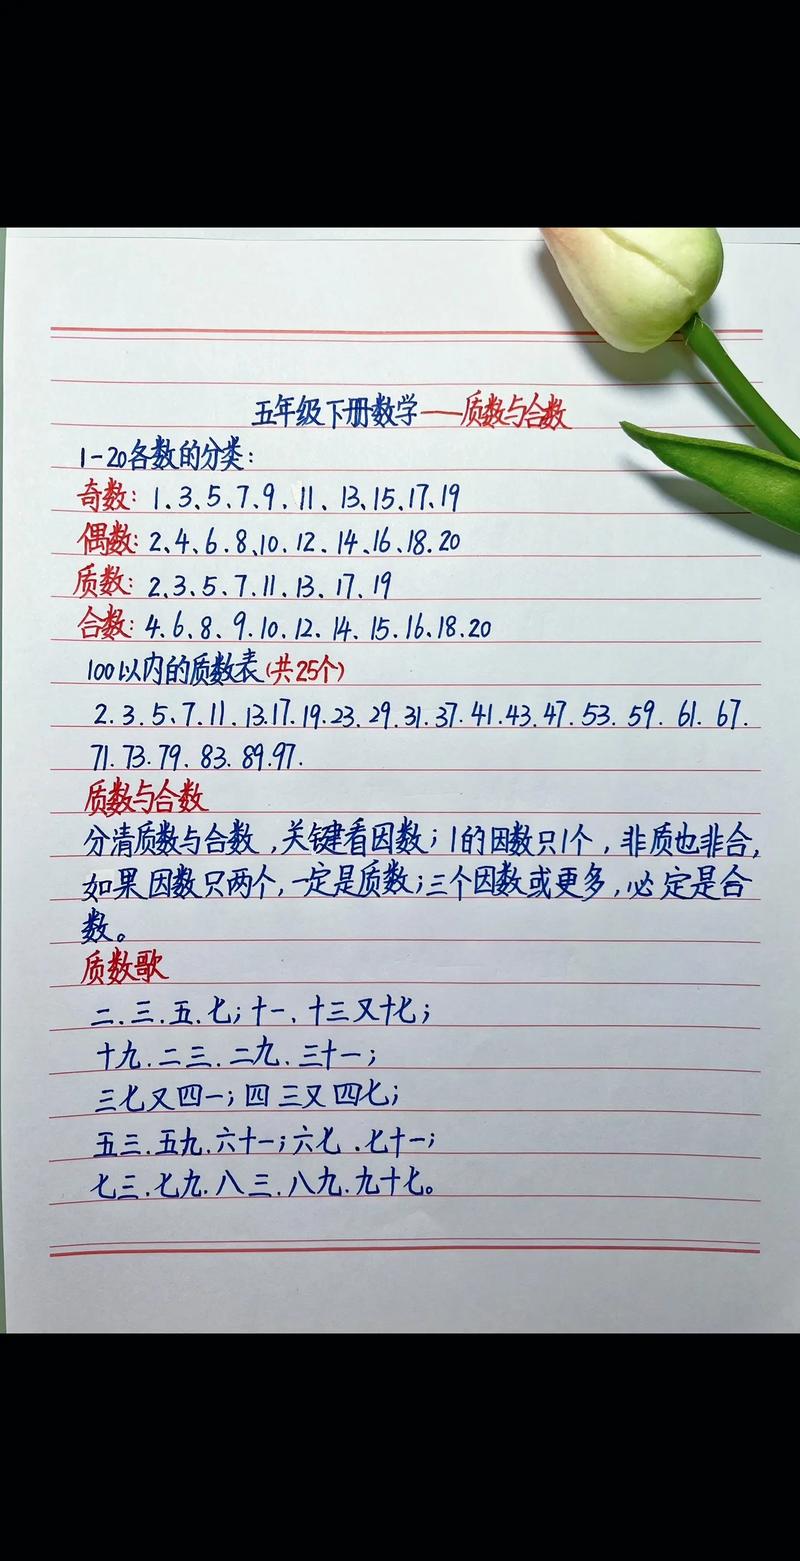 五年级下册数学——质数与合数
1-20各数的分类:
奇数: 1、3、5、7、9、11、13、15、17、19
偶数: 2、4、6、8、10、12、14、16、18、20
质数: 2、3、5、7、11、13、17、19
合数: 4、6、8、9、10、12、14、15、16、18、20
100以内的质数表(共25个)
2、3、5、7、11、13、17、19、23、29、31、37、41、43、47、53、59、61、67、
71、73、79、83、89、97.
质数与合数
分清质数与合数,关键看因数;1的因数只1个,非质也非合,
如果因数只两个,一定是质数;三个因数或更多,必定是合
数。
质数歌
二、三、五、七;十一、十三又十七;
十九、二三、二九、三十一;
三七又四一;四三又四七;
五三、五九、六十一;六七、七十一;
七三、七九、八三、八九、九十七。